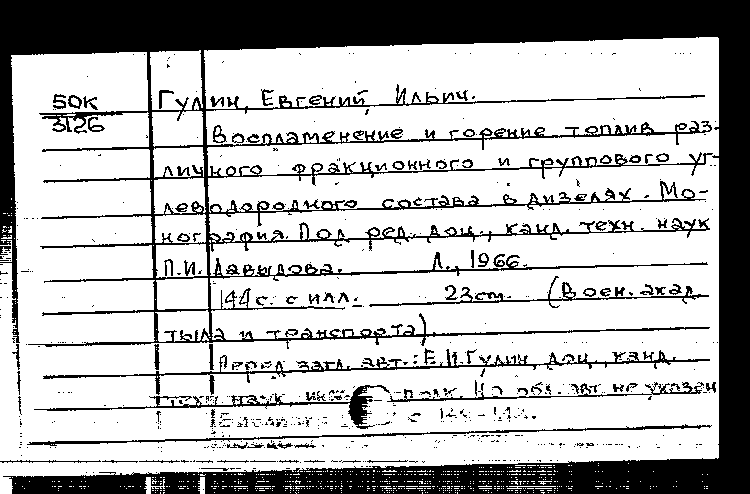 БОК
3126
Гулин, Евгений, Ильич.
Воспламенение и горение топлив раз-
личного фракционного и группового уг-
леводородного состава в дизелях. Мо-
нография. Под ред. доц., канд. техн. наук
П.И. Давыдова. Л., 1966.
144 с. с илл. 23 cm. (Воен. акад.
тыла и транспорта).
Перед загл. авт.: Е.И. Гулин, доц., канд.
техн. наук, полк. На обл. авт. не указан
Библиогр с